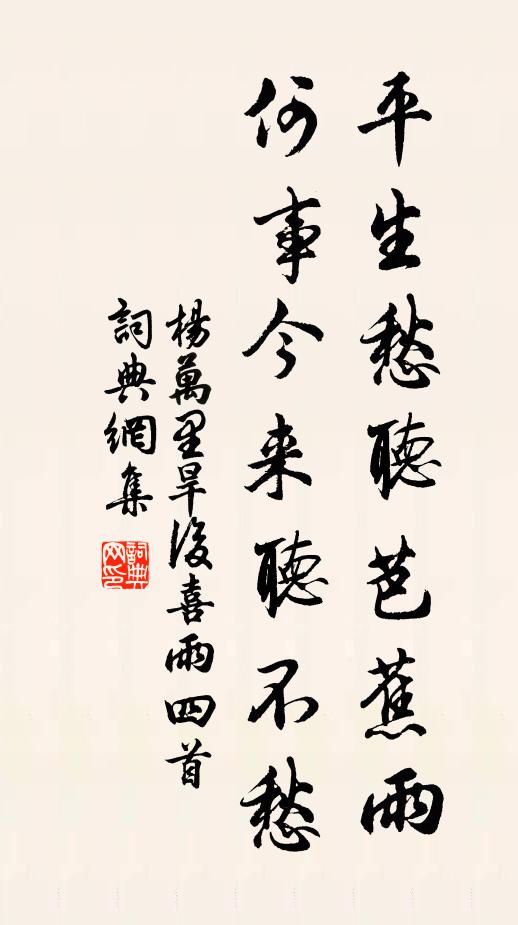 平生愁聽芭蕉雨
何事今来聽不愁
楊萬里旱後喜雨四首
詞典網集
詞典网印